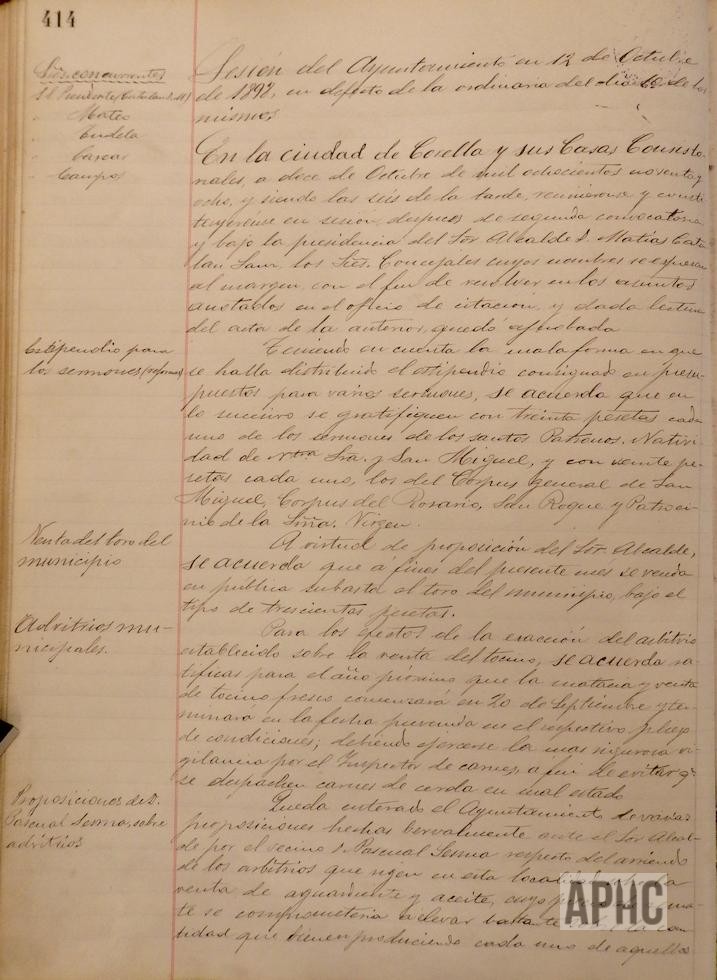 414
Sres. concurrentes
Sesión del Ayuntamiento en 12 de Octubre
de 1898, en defecto de la ordinaria del dia 10 de los
mismos
El Presidente (Catalan D. M)
" Mateo
" Tudela
" Garcas
" Campos
En la ciudad de Corella y sus Casas Consisto-
riales, a doce de Octubre de mil ochocientos noventa y
ocho, y siendo las seis de la tarde, reunieronse y consti-
tuyeronse en sesion, despues de segunda convocatoria
y bajo la presidencia del Sor. Alcalde D. Matías Cata-
lan Sanz, los Sres. Concejales cuyos nombres se expresan
al margen, con el fin de resolver en los asuntos
anotados en el oficio de citación, y dada lectura
del acta de la anterior, quedó aprobada
Estipendio para
los sermones (reforma)
Teniendo en cuenta la mala forma en que
se halla distribuido el estipendio consignado en presu-
puestos para varios sermones, se acuerda que en
lo sucesivo se gratifiquen con treinta pesetas cada
uno de los sermones de los santos Patronos, Nativi-
dad de Ntra Sra. y San Miguel, y con veinte pe-
setas cada uno, los del Corpus general de San
Miguel, Corpus del Rosario, San Roque y Patroci-
nio de la Sma. Virgen.
Venta del toro del
municipio
A virtud de proposición del Sor. Alcalde,
se acuerda que á fines del presente mes se venda
en pública subasta el toro del municipio, bajo el
tipo de trescientas pesetas.
Advitrios mu-
nicipales.
Para los efectos de la exacción del arbitrio
establecido sobre la venta del tocino, se acuerda ra-
tificar para el año próximo que la matacia y venta
de tocino fresco comenzará en 20 de Septiembre y ter-
minará en la fecha prevenida en el respectivo pliego
de condiciones; debiendo ejercerse la mas rigurosa vi-
gilancia por el Inspector de carnes, a fin de evitar q.
se despachen carnes de cerda en mal estado
Proposiciones de D.
Pascual Sesma, sobre
advitrios
Queda enterado el Ayuntamiento de varias
proposiciones hechas bervalmente ante el Sor Alcal-
de por el vecino D. Pascual Sesma respecto del arriendo
de los arbitrios que rigen en esta localidad sobre la
venta de aguardiente y aceite, cuyo
te se comprometeria a elevar bastante la can-
tidad que vienen produciendo cada uno de aquellos
APHC